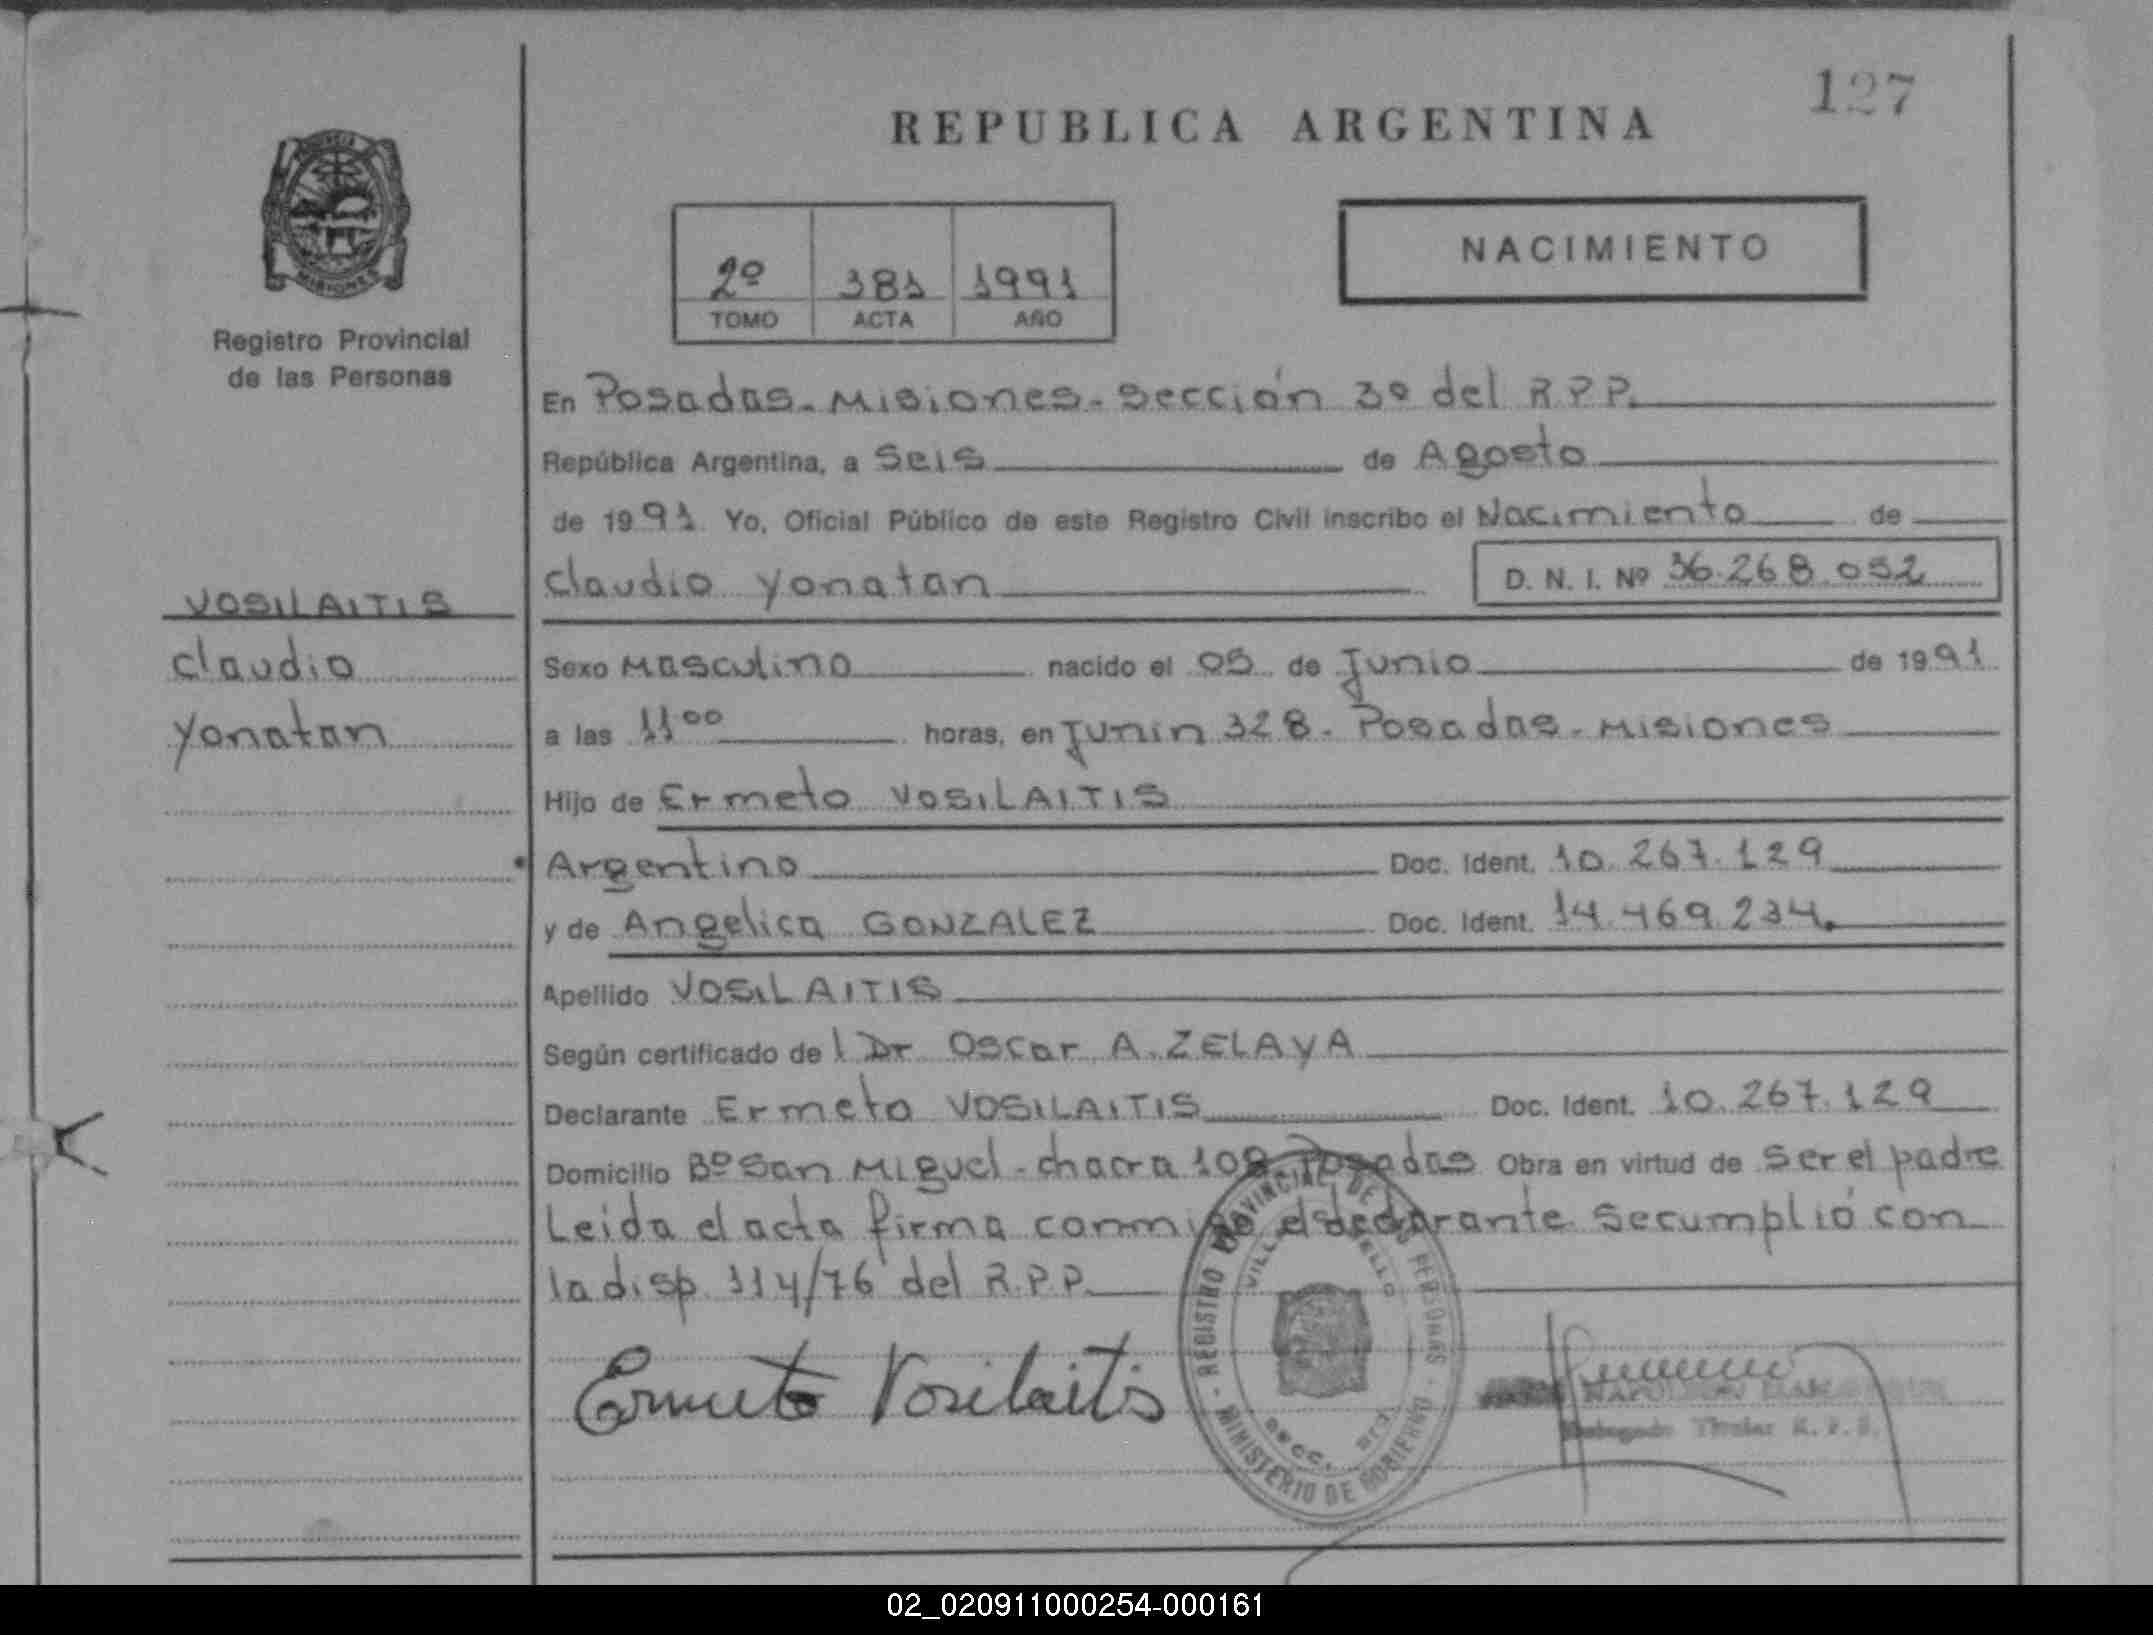 127
REPUBLICA ARGENTINA
PROVINCIA
MISIONES
Registro Provincial
de las Personas
2º 381 1991
TOMO ACTA AÑO
NACIMIENTO
En Posadas - Misiones - Sección 3º del R.P.P.
República Argentina, a Seis de Agosto
de 1991 Yo, Oficial Público de este Registro Civil inscribo el Nacimiento de
Claudio Yonatan D. N. I. Nº 36.268.052
VOSILAITIS
Claudio
Yonatan
Sexo Masculino nacido el 05 de Junio de 1991
a las 11 00 horas, en Junin 328 - Posadas - Misiones
Hijo de Ermeto VOSILAITIS
Argentino Doc. Ident. 10.267.129
y de Angelica GONZALEZ Doc. Ident. 14.469.234.
Apellido VOSILAITIS
Según certificado del Dr Oscar A. ZELAYA
Declarante Ermeto VOSILAITIS Doc. Ident. 10.267.129
Domicilio Bº San Miguel - chacra 108 Posadas Obra en virtud de ser el padre
Leida el acta firma conmigo el declarante Se cumplió con
la disp. 114/76 del R.P.P.
Ermeto Vosilaitis
REGISTRO PROVINCIAL DE LAS PERSONAS
MINISTERIO DE GOBIERNO
Delegado Titular R. P. P.
02_020911000254-000161